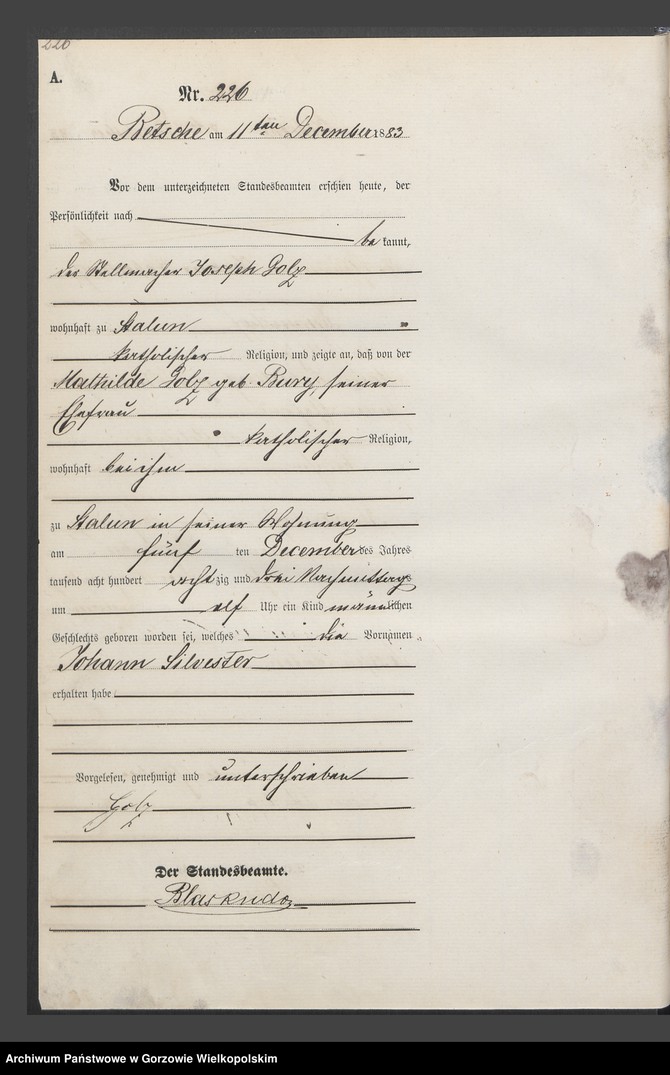 226
A.
Nr. 226
Betsche am 11ten December 1883
Vor dem unterzeichneten Standesbeamten erschien heute, der
Persönlichkeit nach
bekannt,
der Stellmacher Joseph Golz
wohnhaft zu Stalun
katholischer Religion, und zeigte an, daß von der
Mathilde Golz geb. Bury, seiner
Ehefrau
katholischer Religion,
wohnhaft bei ihm
zu Stalun in seiner Wohnung
am fünf ten December des Jahres
tausend acht hundert achtzig und drei Nachmittags
um elf Uhr ein Kind männlichen
Geschlechts geboren worden sei, welches die Vornamen
Johann Silvester
erhalten habe
Vorgelesen, genehmigt und unterschrieben
Golz
Der Standesbeamte.
Archiwum Państwowe w Gorzowie Wielkopolskim